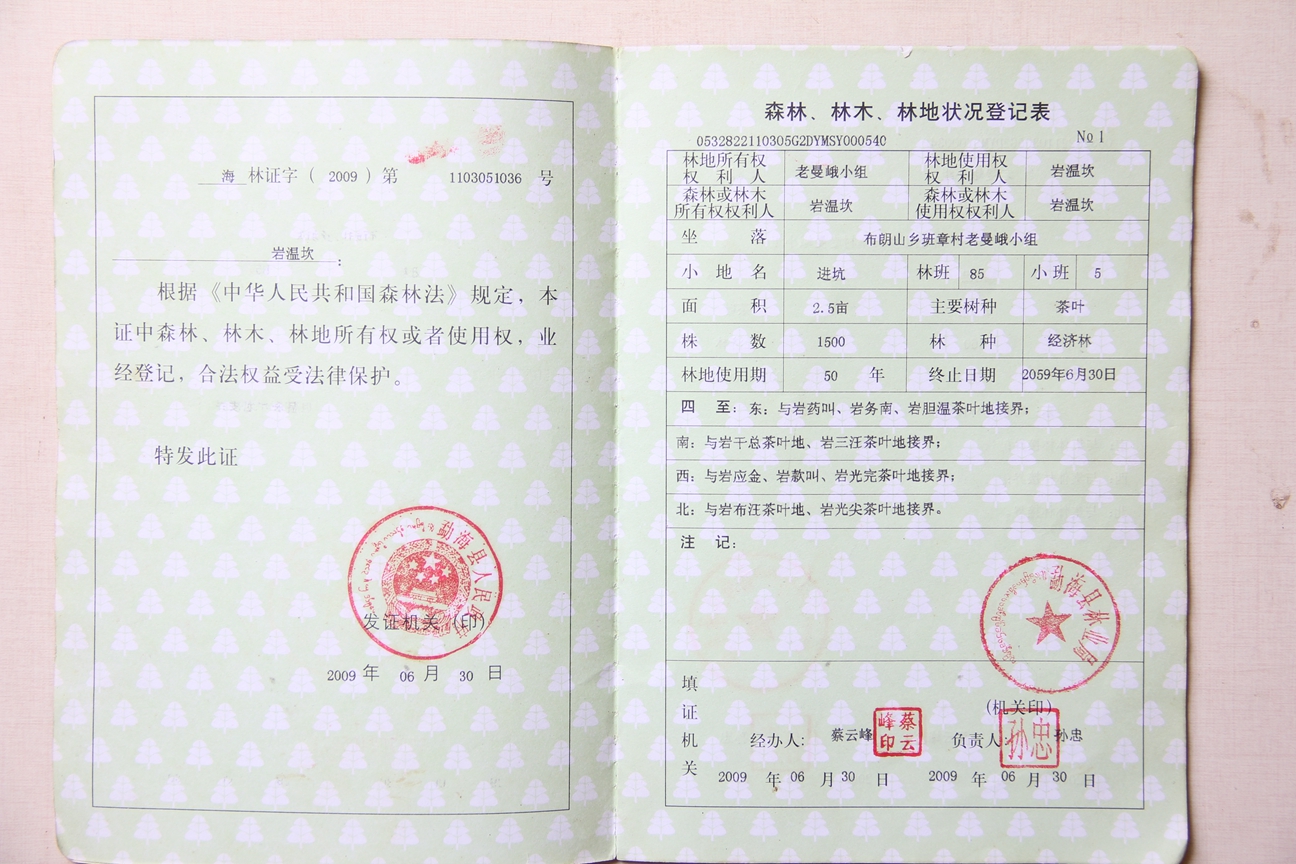 海 林证字（ 2009 ）第 1103051036 号
岩温坎 ：
根据《中华人民共和国森林法》规定，本
证中森林、林木、林地所有权或者使用权，业
经登记，合法权益受法律保护。
特发此证
勐海县人民政府
发证机关（印）
2009 年 06 月 30 日
森林、林木、林地状况登记表
0532822110305G2DYMSY000540 №1
林地所有权权利人 老曼峨小组 林地使用权权利人 岩温坎
森林或林木所有权权利人 岩温坎 森林或林木使用权权利人 岩温坎
坐落 布朗山乡班章村老曼峨小组
小地名 进坑 林班 85 小班 5
面积 2.5亩 主要树种 茶叶
株数 1500 林种 经济林
林地使用期 50 年 终止日期 2059年6月30日
四至：东：与岩药叫、岩务南、岩胆温茶叶地接界；
南：与岩干总茶叶地、岩三汪茶叶地接界；
西：与岩应金、岩款叫、岩光完茶叶地接界；
北：与岩布汪茶叶地、岩光尖茶叶地接界。
注记：
勐海县林业局
填证机关
（机关印）
经办人：蔡云峰 蔡云峰印 负责人：孙忠 孙忠
2009 年 06 月 30 日 2009 年 06 月 30 日